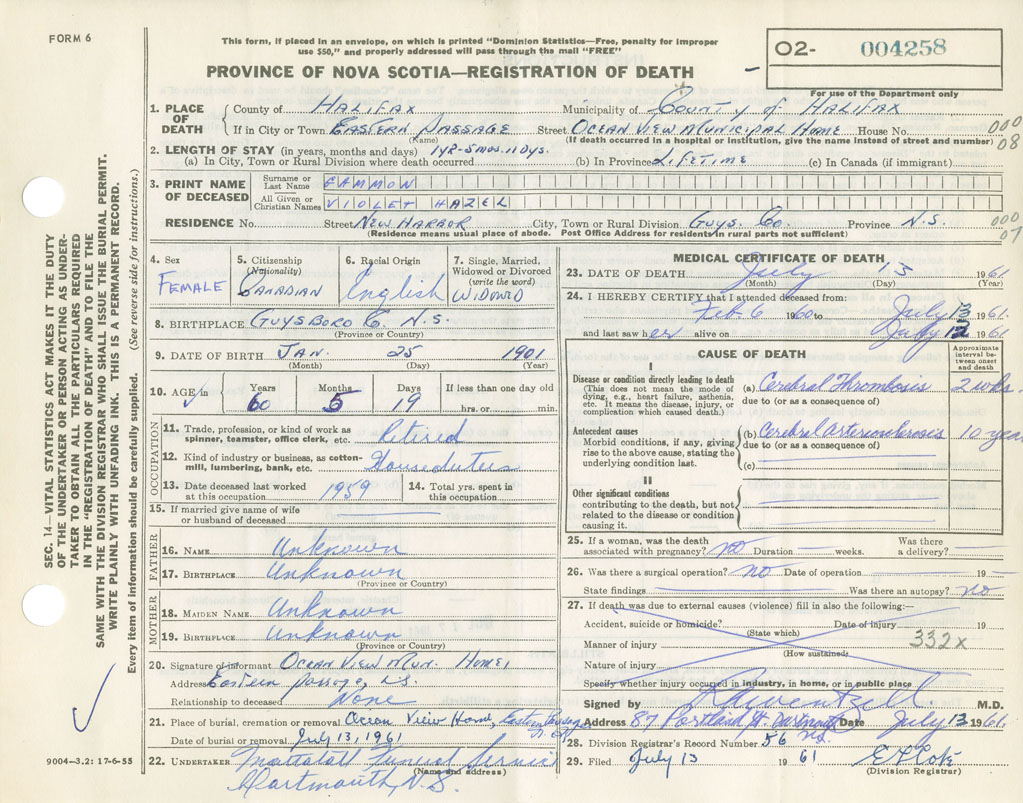 FORM 6
This form, if placed in an envelope, on which is printed "Dominion Statistics—Free, penalty for improper
use $50," and properly addressed will pass through the mail "FREE"
O2- 004258
PROVINCE OF NOVA SCOTIA—REGISTRATION OF DEATH
For use of the Department only
1. PLACE OF DEATH County of HALIFAX Municipality of COUNTY of HALIFAX
If in City or Town EASTERN PASSAGE Street OCEAN VIEW MUNICIPAL HOME House No. 000
(Name) (If death occurred in a hospital or institution, give the name instead of street and number) 08
2. LENGTH OF STAY (in years, months and days) 1YR-5mos. 11Days.
(a) In City, Town or Rural Division where death occurred (b) In Province LIFETIME (c) In Canada (if immigrant)
3. PRINT NAME OF DECEASED Surname or Last Name GAMMON
All Given or Christian Names VIOLET HAZEL
RESIDENCE No. Street NEW HARBOR City, Town or Rural Division GUYS. CO. Province N.S. 000
(Residence means usual place of abode. Post Office Address for residents in rural parts not sufficient) 07
4. Sex FEMALE
5. Citizenship (Nationality) CANADIAN
6. Racial Origin English
7. Single, Married, Widowed or Divorced (write the word) WIDOWD
8. BIRTHPLACE GUYSBORO Co. N.S.
(Province or Country)
9. DATE OF BIRTH JAN. 25 1901
(Month) (Day) (Year)
10. AGE in Years 60 Months 5 Days 19 If less than one day old hrs. or min.
OCCUPATION
11. Trade, profession, or kind of work as spinner, teamster, office clerk, etc. Retired
12. Kind of industry or business, as cotton-mill, lumbering, bank, etc. Houseduties
13. Date deceased last worked at this occupation 1959 14. Total yrs. spent in this occupation
15. If married give name of wife or husband of deceased
FATHER
16. NAME Unknown
17. BIRTHPLACE Unknown
(Province or Country)
MOTHER
18. MAIDEN NAME Unknown
19. BIRTHPLACE Unknown
(Province or Country)
20. Signature of informant OCEAN VIEW MUN. HOME,
Address Eastern Passage, N.S.
Relationship to deceased None
21. Place of burial, cremation or removal Ocean View Home, Eastern Passage
Date of burial or removal July 13, 1961
22. UNDERTAKER Mattatall Funeral Service
(Name and address)
Dartmouth, N.S.
MEDICAL CERTIFICATE OF DEATH
23. DATE OF DEATH July 13 1961
(Month) (Day) (Year)
24. I HEREBY CERTIFY that I attended deceased from:
Feb 6 1960 to July 13 1961
and last saw her alive on July 12 1961
CAUSE OF DEATH
Approximate interval between onset and death
I
Disease or condition directly leading to death
(This does not mean the mode of dying, e.g., heart failure, asthenia, etc. It means the disease, injury, or complication which caused death.)
(a) Cerebral Thrombosis 2 wks.
due to (or as a consequence of)
Antecedent causes
Morbid conditions, if any, giving rise to the above cause, stating the underlying condition last.
(b) Cerebral Arteriosclerosis 10 years
due to (or as a consequence of)
(c)
II
Other significant conditions
contributing to the death, but not related to the disease or condition causing it.
25. If a woman, was the death associated with pregnancy? no Duration weeks. Was there a delivery?
26. Was there a surgical operation? no Date of operation 19
State findings Was there an autopsy? no
27. If death was due to external causes (violence) fill in also the following:—
Accident, suicide or homicide? Date of injury 19
(State which)
Manner of injury 332X
(How sustained)
Nature of injury
Specify whether injury occurred in industry, in home, or in public place
Signed by M.D.
Address 87 Portland St. Dartmouth N.S. Date July 13 1961
28. Division Registrar's Record Number 56
29. Filed July 13 1961
(Division Registrar)
SEC. 14—VITAL STATISTICS ACT MAKES IT THE DUTY
OF THE UNDERTAKER OR PERSON ACTING AS UNDER-
TAKER TO OBTAIN ALL THE PARTICULARS REQUIRED
IN THE "REGISTRATION OF DEATH" AND TO FILE THE
SAME WITH THE DIVISION REGISTRAR WHO SHALL ISSUE THE BURIAL PERMIT.
WRITE PLAINLY WITH UNFADING INK. THIS IS A PERMANENT RECORD.
Every item of information should be carefully supplied. (See reverse side for instructions.)
9004—3.2: 17-6-55